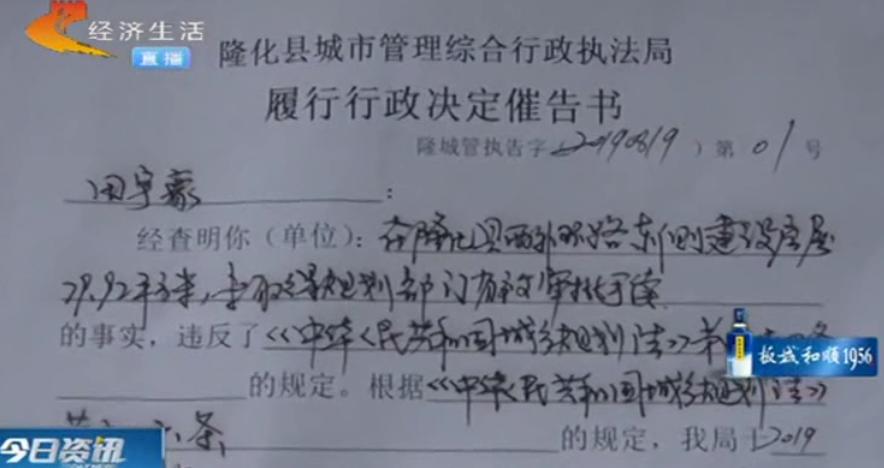 经济生活
直播
隆化县城市管理综合行政执法局
履行行政决定催告书
隆城管执告字(20190819)第01号
田宇豪:
经查明你(单位):在隆化县西外环路东侧建设房屋
29.92平方米,未取得规划部门有效审批手续
的事实,违反了《中华人民共和国城乡规划法》第
板城和顺1956
的规定。根据《中华人民共和国城乡规划法》
条
的规定,我局于2019
今日资讯